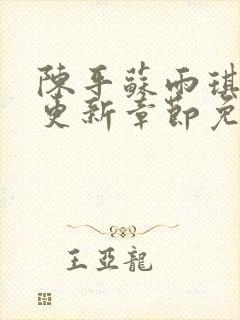 陳平蘇雨琪
更新章節免
王亞龍